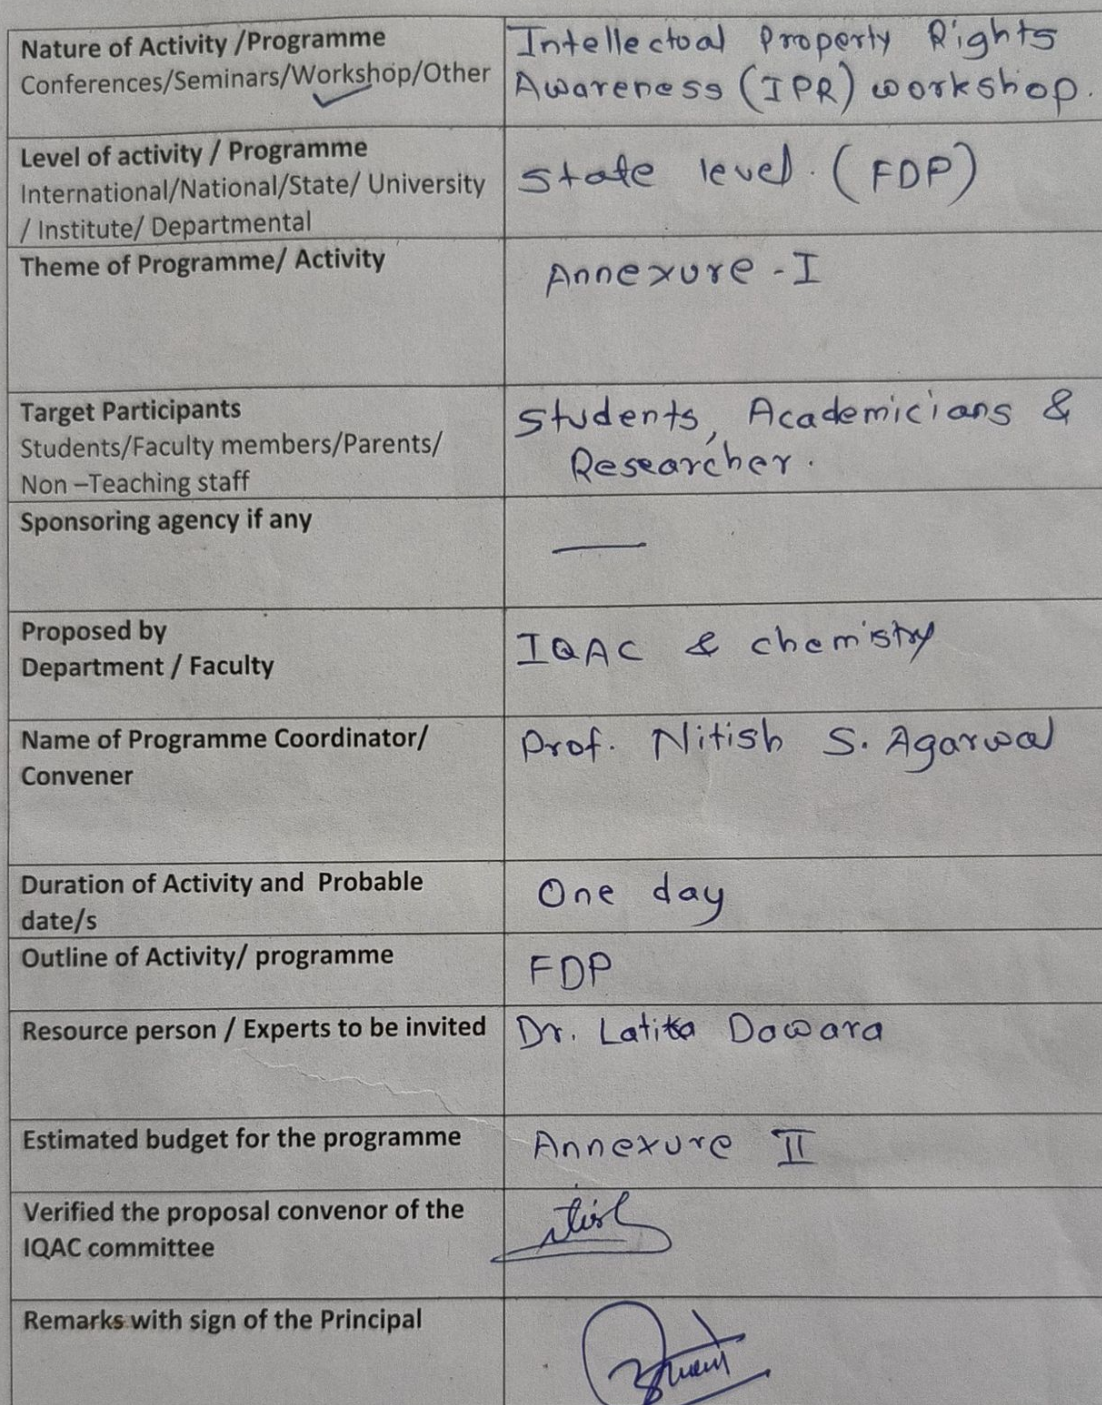 Nature of Activity /Programme
Conferences/Seminars/Workshop/Other
Intellectual Property Rights
Awareness (IPR) workshop.
Level of activity / Programme
International/National/State/ University
/ Institute/ Departmental
State level. (FDP)
Theme of Programme/ Activity
Annexure - I
Target Participants
Students/Faculty members/Parents/
Non –Teaching staff
Students, Academicians &
Researcher.
Sponsoring agency if any
Proposed by
Department / Faculty
IQAC & chemistry
Name of Programme Coordinator/
Convener
Prof. Nitish S. Agarwal
Duration of Activity and Probable
date/s
One day
Outline of Activity/ programme
FDP
Resource person / Experts to be invited
Dr. Latika Dawara
Estimated budget for the programme
Annexure II
Verified the proposal convenor of the
IQAC committee
Remarks with sign of the Principal